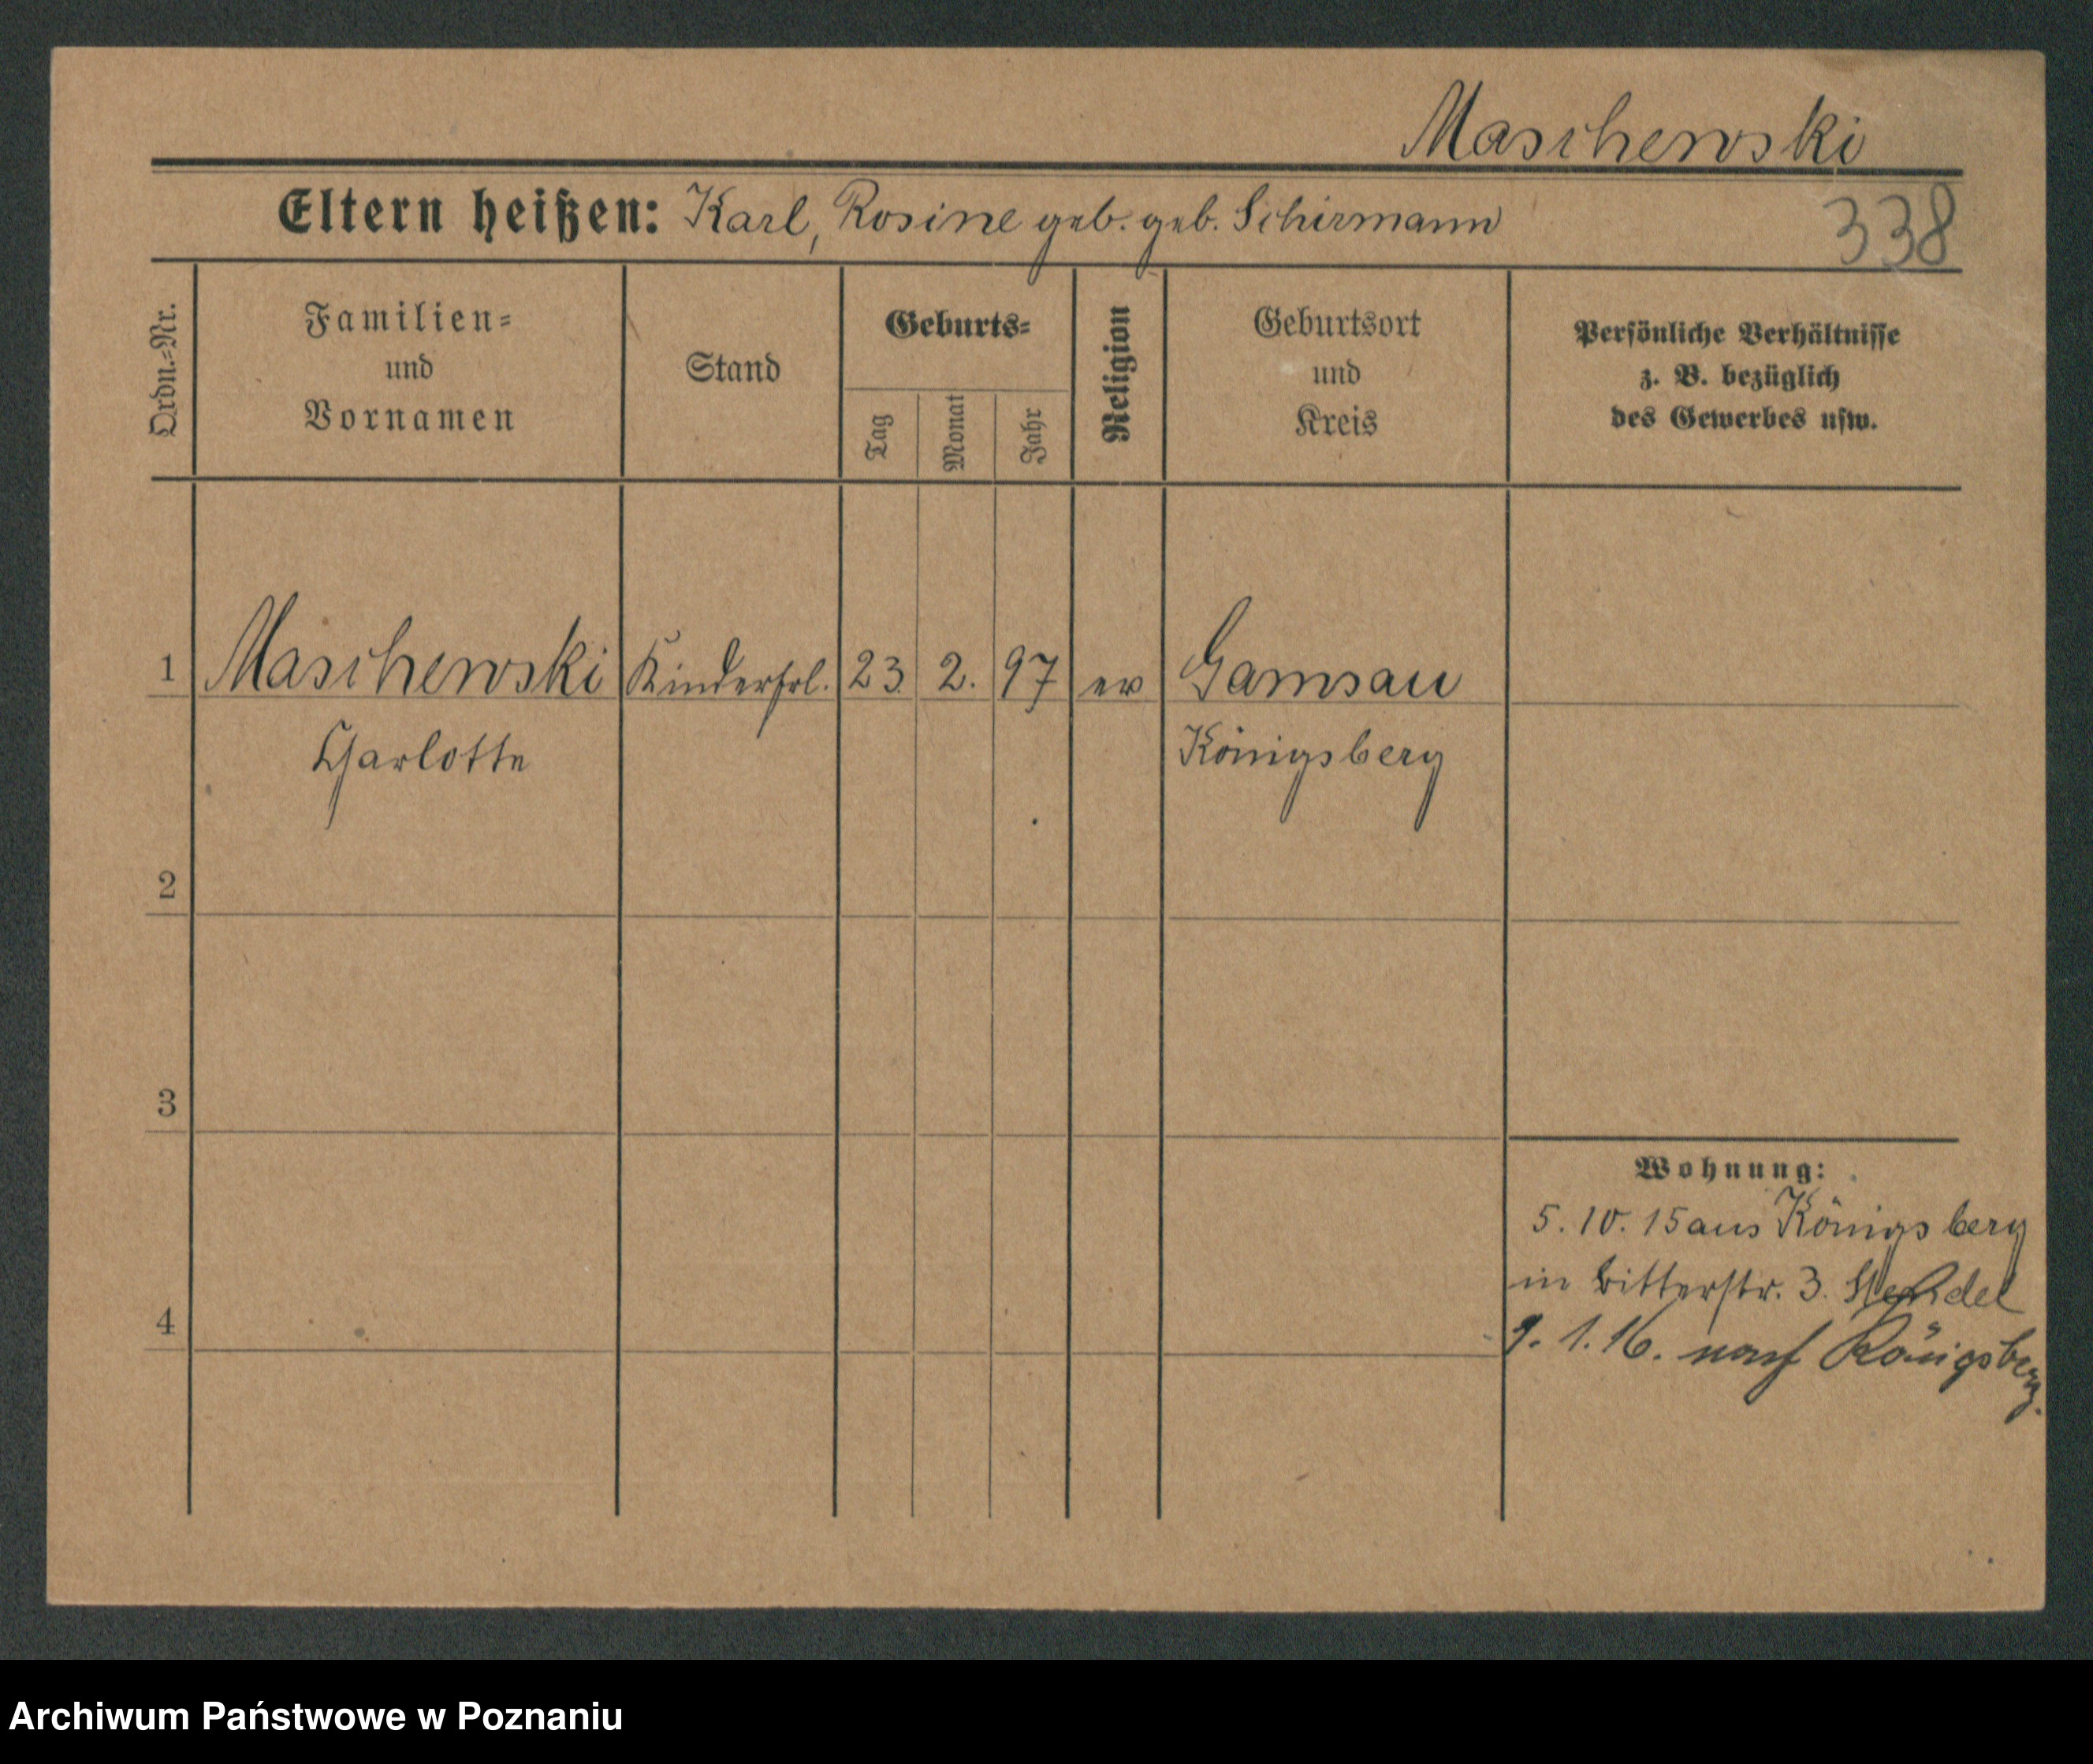 Maschewski
Eltern heißen: Karl, Rosine geb. geb. Schirmann
338
Ordn.-Nr.
Familien-
und
Vornamen
Stand
Geburts-
Tag
Monat
Jahr
Religion
Geburtsort
und
Kreis
Persönliche Verhältnisse
z. B. bezüglich
des Gewerbes usw.
1 Maschewski Kinderfrl. 23. 2. 97 ev Gamsau
Charlotte Königsberg
2
3
4
Wohnung:
5. 10. 15 aus Königsberg
in Ritterstr. 3.
9. 1. 16. nach Königsberg.
Archiwum Państwowe w Poznaniu